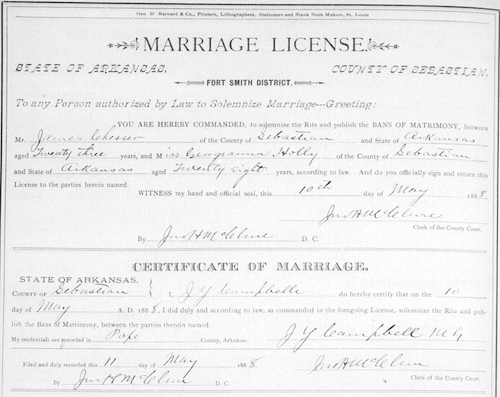 Geo D Barnard & Co., Printers, Lithographers, Stationers and Blank Book Makers, St. Louis
MARRIAGE LICENSE.
STATE OF ARKANSAS, COUNTY OF SEBASTIAN.
FORT SMITH DISTRICT.
To any Person authorized by Law to Solemnize Marriage—Greeting:
YOU ARE HEREBY COMMANDED, to solemnize the Rite and publish the BANS OF MATRIMONY, between
Mr. James Chosser of the County of Sebastian and State of Arkansas
aged Twenty three years, and Miss Holly of the County of Sebastian
and State of Arkansas aged Twenty Eight years, according to law. And do you officially sign and return this
License to the parties herein named.
WITNESS my hand and official seal, this 10th day of May 1888.
Jno H McClure
Clerk of the County Court.
By Jno H McClure D. C.
CERTIFICATE OF MARRIAGE.
STATE OF ARKANSAS,
COUNTY OF Sebastian I, J Y Campbell do hereby certify that on the 10
day of May A. D. 1888, I did duly and according to law, as commanded in the foregoing License, solemnize the Rite and pub-
lish the Bans of Matrimony, between the parties therein named.
My credentials are recorded in Pope County, Arkansas. J Y Campbell M G
Filed and duly recorded this 11 day of May 1888 Jno H McClure
By Jno H McClure D. C. Clerk of the County Court.